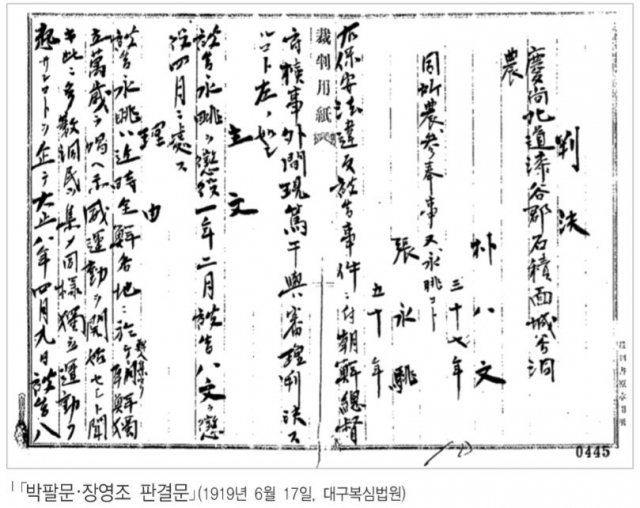 判決
慶尚北道漆谷郡石積面城谷洞
農
朴八文
三十七年
同所農 参奉事又永眺コト
張永眺
五十年
右保安法違反被告事件ニ付朝鮮總督
裁判用紙
府檢事外間現篤干與審理判決ス
ルコト左ノ如シ
主文
被告永眺ヲ懲役一年二月被告八文ヲ懲
役四月ニ処ス
理由
被告永眺ハ近時全鮮各地ニ於テ朝鮮獨
立萬歳ヲ唱ヘ示威運動ヲ開始セシト聞
キ此ニ多数洞民ヲ集メ同様獨立運動ヲ
起サンコトヲ企テ大正八年四月九日被告八
0445
「박팔문·장영조 판결문」(1919년 6월 17일, 대구복심법원)